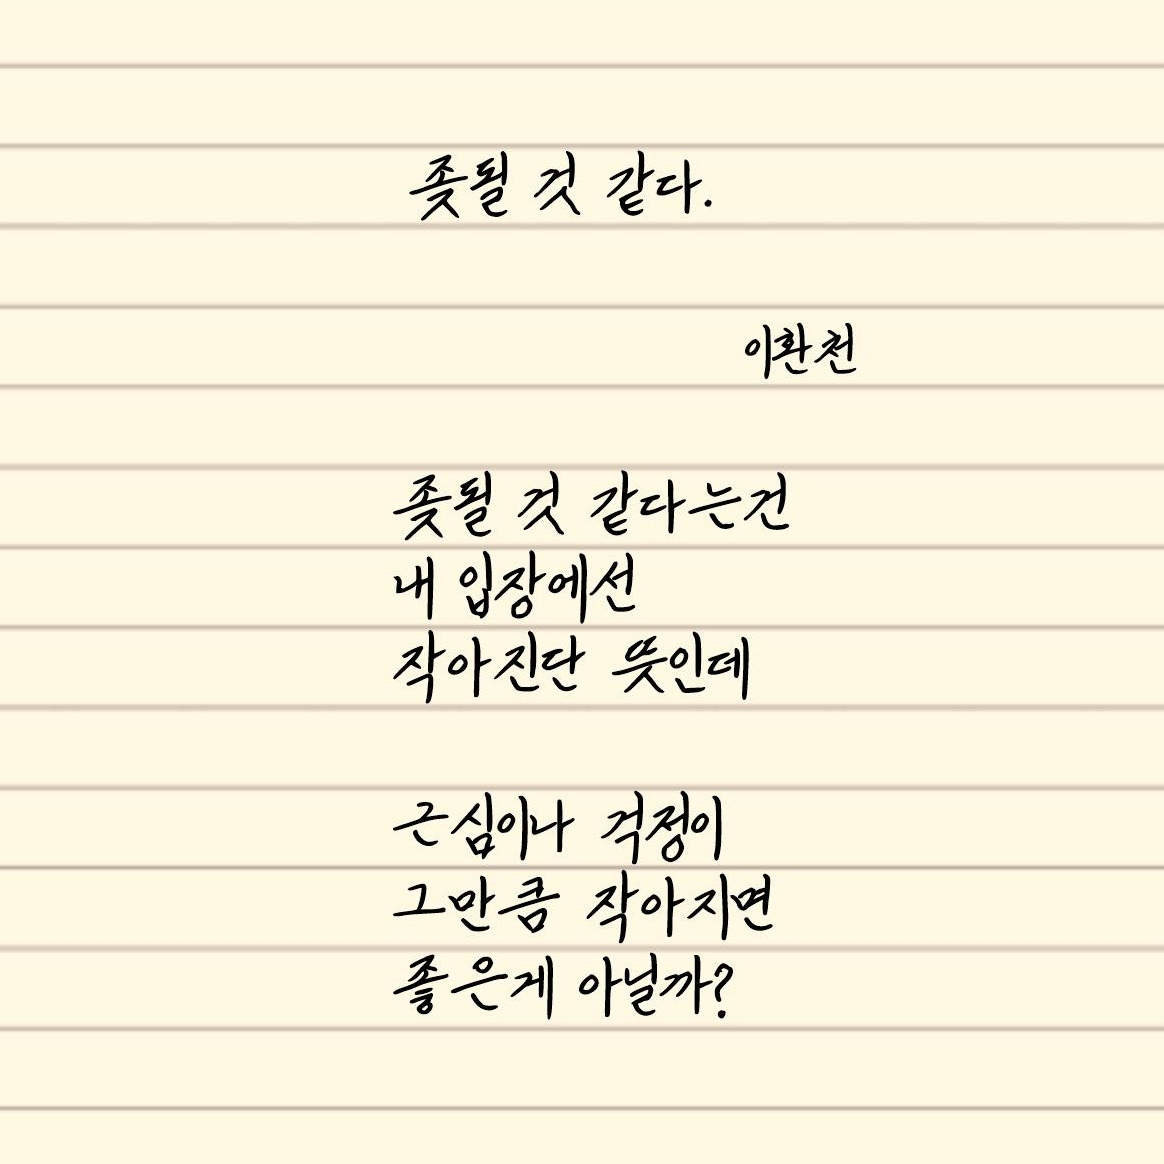 좆될 것 같다.
이환천
좆될 것 같다는건
내 입장에선
작아진단 뜻인데
근심이나 걱정이
그만큼 작아지면
좋은게 아닐까?